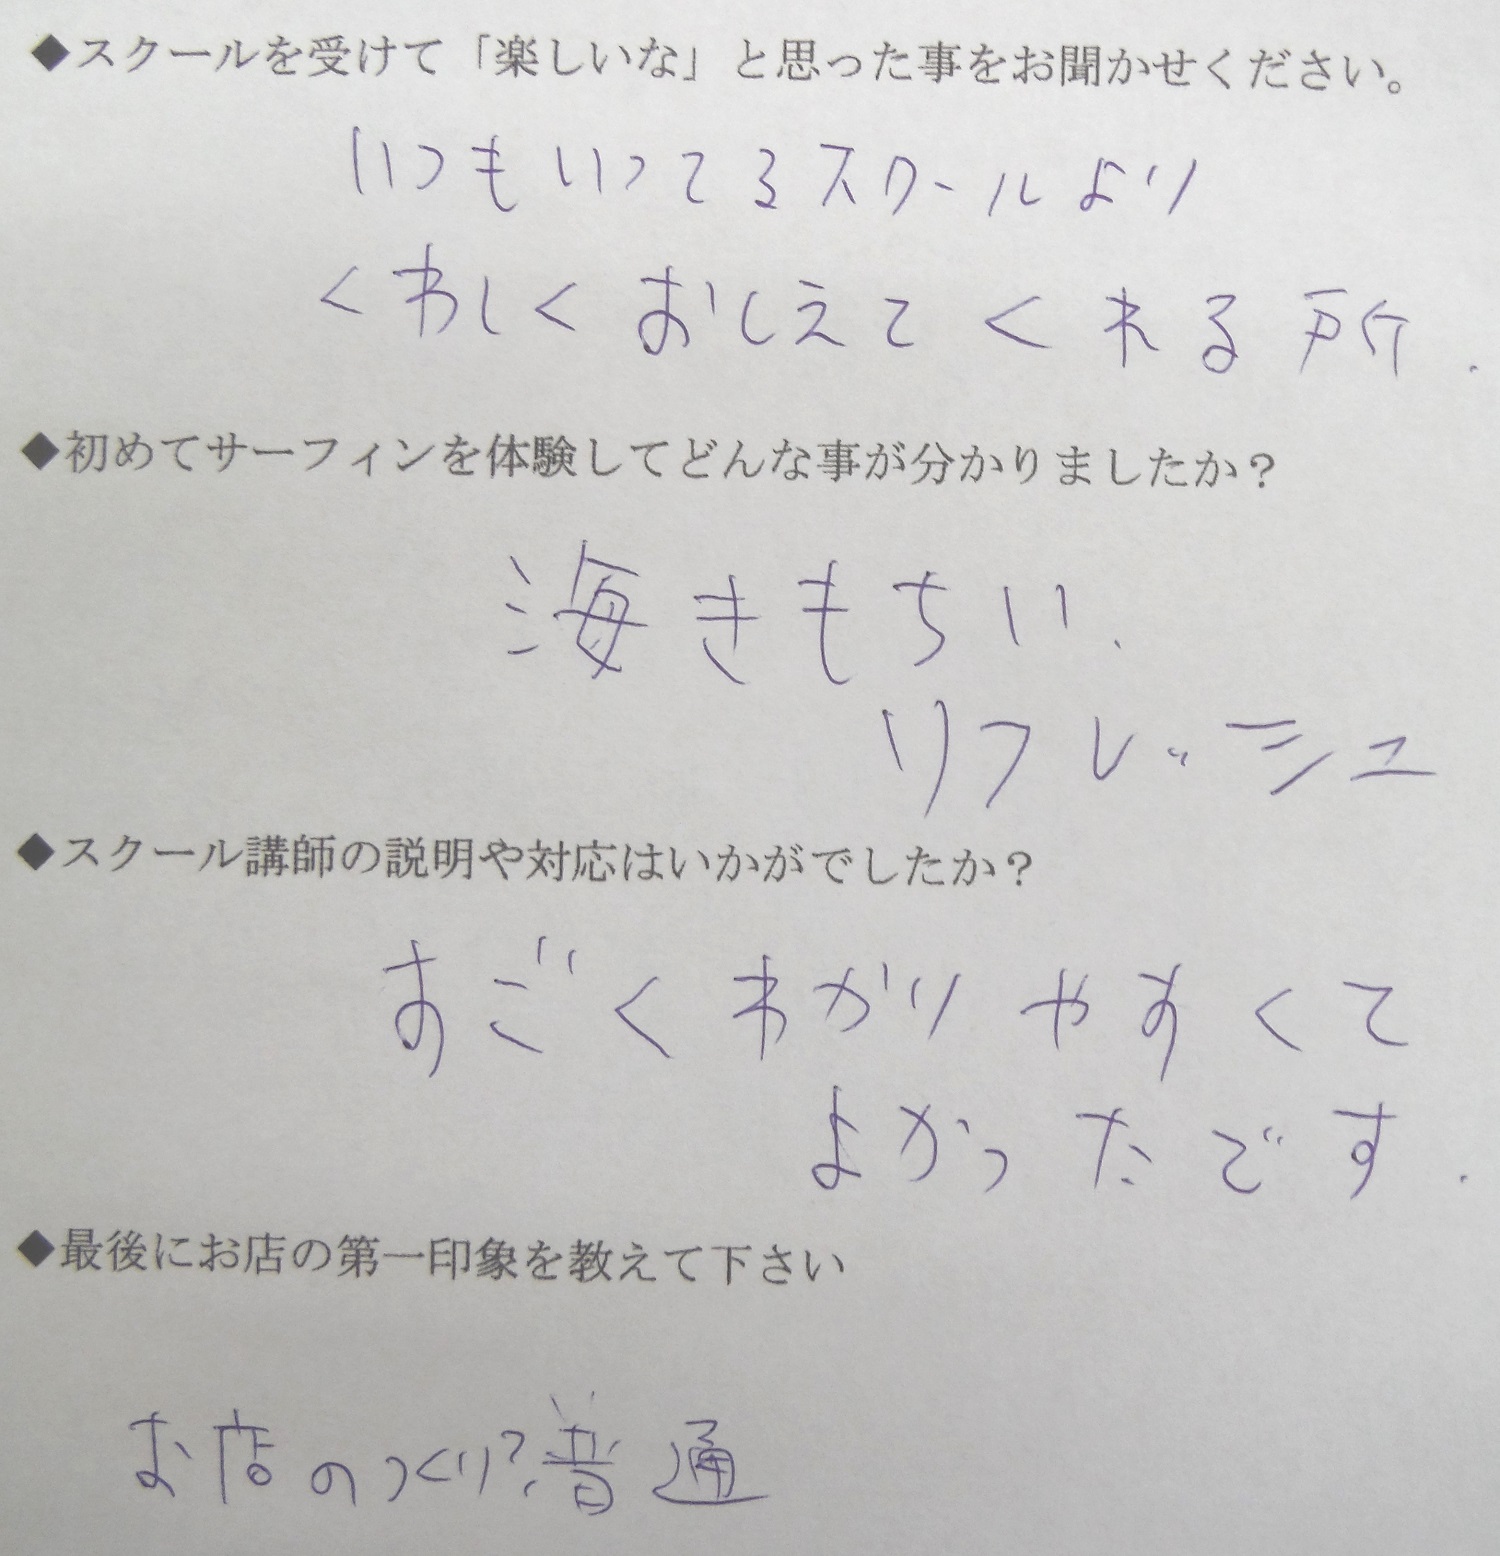 ◆スクールを受けて「楽しいな」と思った事をお聞かせください。
いつもいってるスクールより
くわしくおしえてくれる所.
◆初めてサーフィンを体験してどんな事が分かりましたか？
海きもちい.
リフレッシュ
◆スクール講師の説明や対応はいかがでしたか？
すごくわかりやすくて
よかったです.
◆最後にお店の第一印象を教えて下さい
お店のつくり?普通